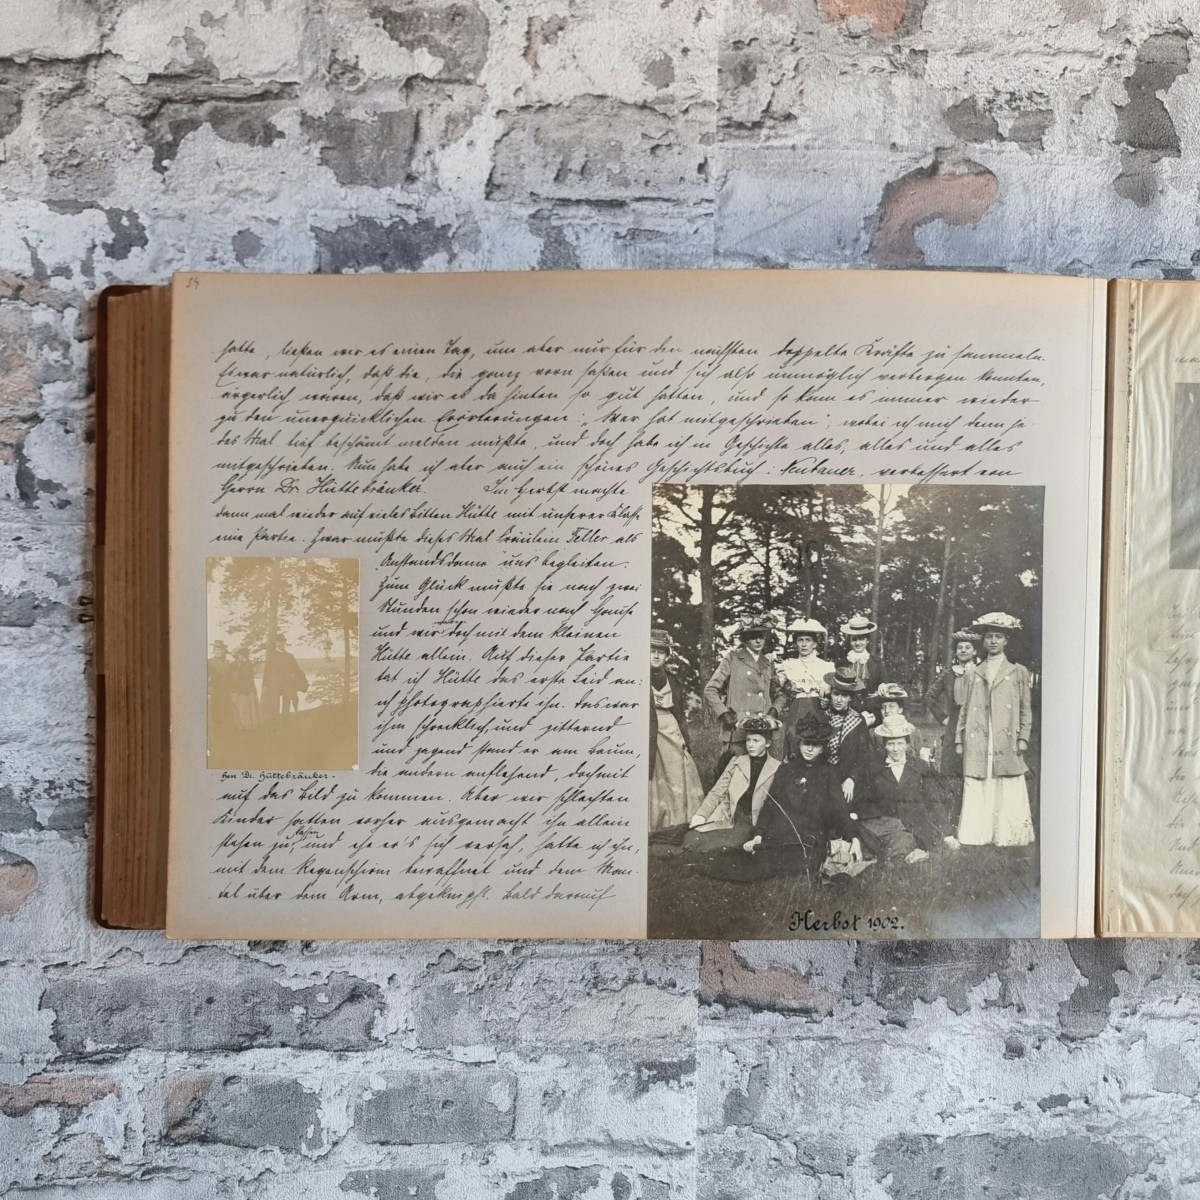 54
hatte, ließen wir es einen Tag, um aber nur für den nächsten doppelte Kräfte zu sammeln.
Etwas natürlich, daß die, die ganz vorn saßen und sich also unmöglich verbergen konnten,
ärgerlich waren, daß wir es da hinten so gut hatten, und so kam es immer wieder
zu den unerquicklichen Erörterungen: „Wer hat mitgeschrieben", wobei ich mich denn je-
des Mal tief beschämt melden mußte, und doch habe ich in Geschichte alles, alles und alles
mitgeschrieben. Nun habe ich aber auch ein schönes Geschichtsbuch: Neubauer, verbessert von
Herrn Dr. Hüttebräuker. Im Herbst machte
dann mal wieder auf vieles Bitten Hütte mit unserer Klasse
eine Partie. Zwar mußte dieses Mal Fräulein Teller als
Anstandsdame uns begleiten.
Zum Glück mußte sie nach zwei
Stunden schon wieder nach Hause
und wir doch mit dem kleinen
Hütte allein. Auf dieser Partie
tat ich Hütte das erste Leid an:
ich photographierte ihn. Das war
ihm schrecklich, und zitternd
und zagend stand er am Baum,
die andern anflehend, doch mit
auf das Bild zu kommen. Aber wir schlechten
Kinder hatten vorher ausgemacht ihn allein
stehen zu lassen, und ehe er's sich versah, hatte ich ihn,
mit dem Regenschirm bewaffnet und dem Man-
tel über dem Arm, abgeknipst. Bald darauf
Herr Dr. Hüttebräuker.
Herbst 1902.